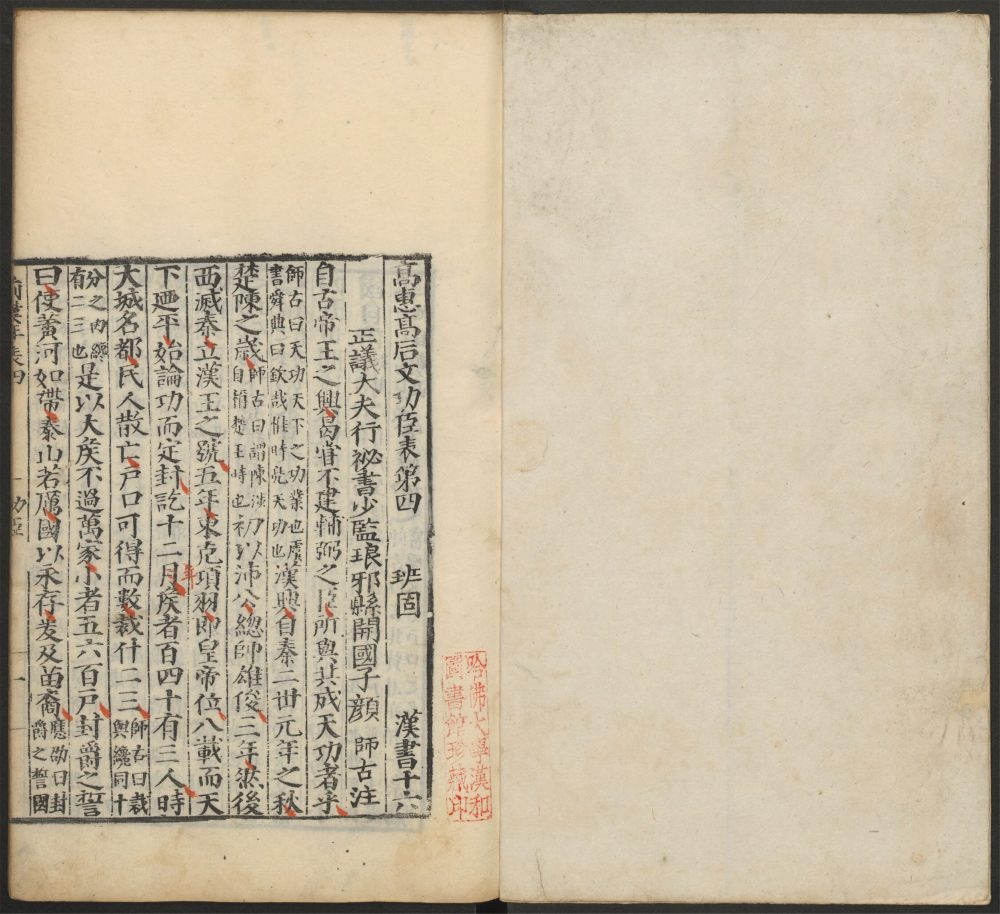 高惠高后文功臣表第四 班固 漢書十六
正議大夫行祕書少監琅邪縣開國子顏 師古注
自古帝王之興曷嘗不建輔弼之臣所與共成天功者乎
師古曰天功天下之功業也虞
書舜典曰欽哉惟時亮天功也
漢興自秦二世元年之秋
楚陳之歲
師古曰謂陳涉
自稱楚王時也
初以沛公總帥雄俊三年然後
西滅秦立漢王之號五年東克項羽即皇帝位八載而天
下迺平始論功而定封訖十二月
年
侯者百四十有三人時
大城名都民人散亡戶口可得而數裁什二三
師古曰裁
與纔同十
分之內纔
有二三也
是以大侯不過萬家小者五六百戶封爵之誓
曰使黃河如帶泰山若厲國以永存爰及苗裔
應劭曰封
爵之誓國
前漢年表四
功臣
一
哈佛大學漢和
圖書館珍藏印